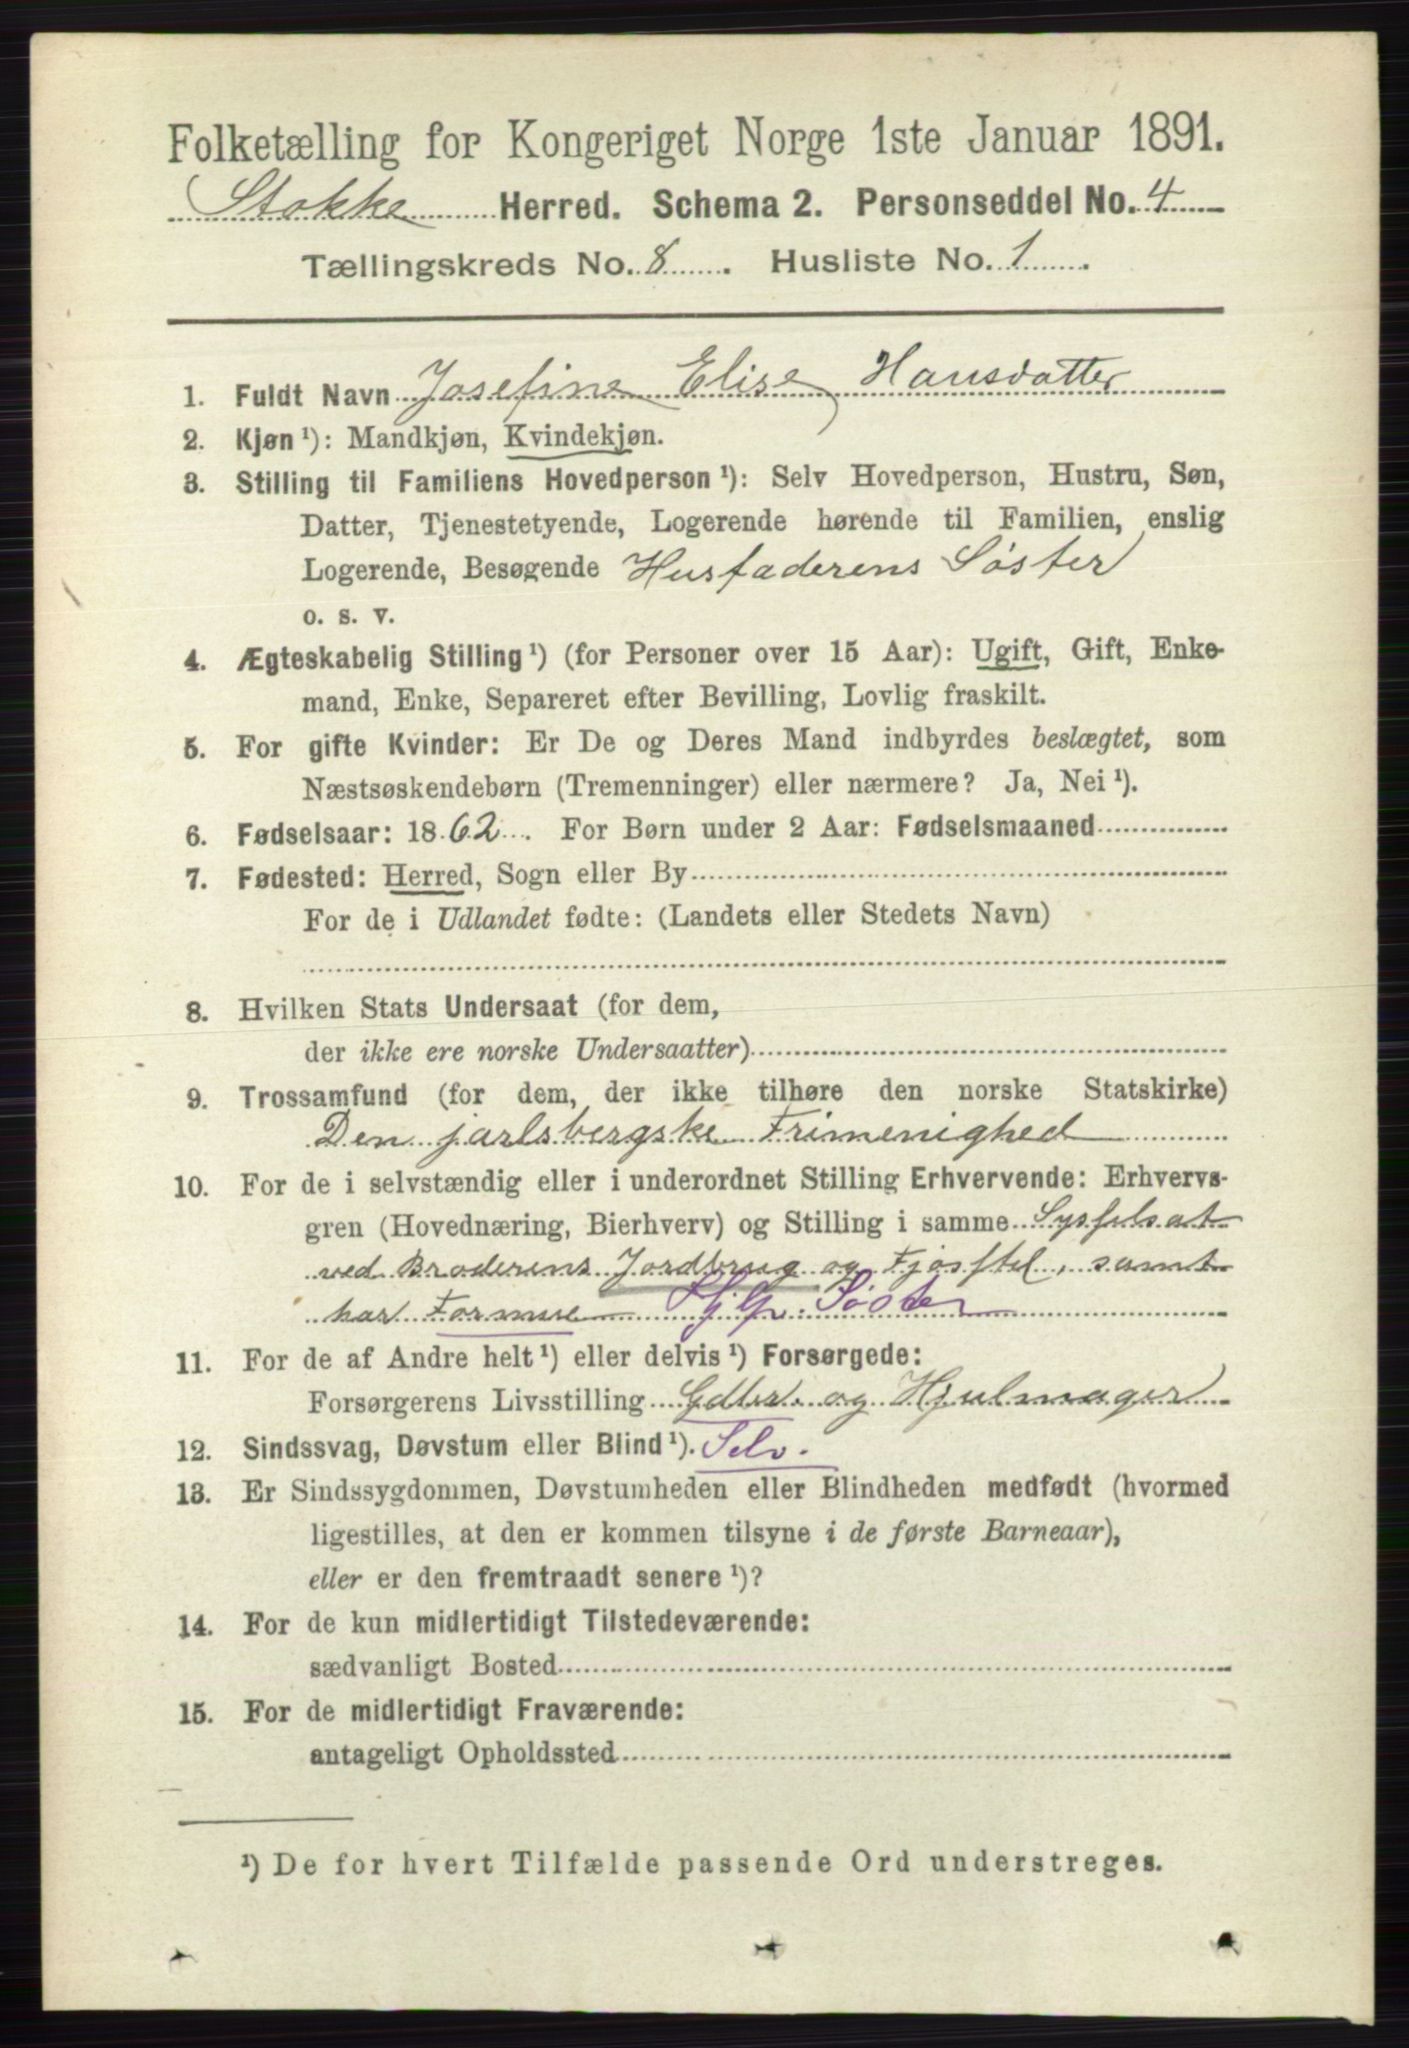 Folketælling for Kongeriget Norge 1ste Januar 1891.
Stokke Herred. Schema 2. Personseddel No. 4
Tællingskreds No. 8. Husliste No. 1.
1. Fuldt Navn Josefine Elise Hansdatter
2. Kjøn ¹): Mandkjøn, Kvindekjøn.
3. Stilling til Familiens Hovedperson ¹): Selv Hovedperson, Hustru, Søn,
Datter, Tjenestetyende, Logerende hørende til Familien, enslig
Logerende, Besøgende Husfaderens Søster
o. s. v.
4. Ægteskabelig Stilling ¹) (for Personer over 15 Aar): Ugift, Gift, Enke-
mand, Enke, Separeret efter Bevilling, Lovlig fraskilt.
5. For gifte Kvinder: Er De og Deres Mand indbyrdes beslægtet, som
Næstsøskendebørn (Tremenninger) eller nærmere? Ja, Nei ¹).
6. Fødselsaar: 1862. For Børn under 2 Aar: Fødselsmaaned
7. Fødested: Herred, Sogn eller By
For de i Udlandet fødte: (Landets eller Stedets Navn)
8. Hvilken Stats Undersaat (for dem,
der ikke ere norske Undersaatter)
9. Trossamfund (for dem, der ikke tilhøre den norske Statskirke)
Den jarlsbergske Frimenighed
10. For de i selvstændig eller i underordnet Stilling Erhvervende: Erhvervs-
gren (Hovednæring, Bierhverv) og Stilling i samme Sysselsat
ved Broderens Jordbrug og Fjøsstel, samt
har Formue Hjlp. Søster
11. For de af Andre helt ¹) eller delvis ¹) Forsørgede:
Forsørgerens Livsstilling Gdbr. og Hjulmager
12. Sindssvag, Døvstum eller Blind ¹). Selv.
13. Er Sindssygdommen, Døvstumheden eller Blindheden medfødt (hvormed
ligestilles, at den er kommen tilsyne i de første Barneaar),
eller er den fremtraadt senere ¹)?
14. For de kun midlertidigt Tilstedeværende:
sædvanligt Bosted
15. For de midlertidigt Fraværende:
antageligt Opholdssted
¹) De for hvert Tilfælde passende Ord understreges.